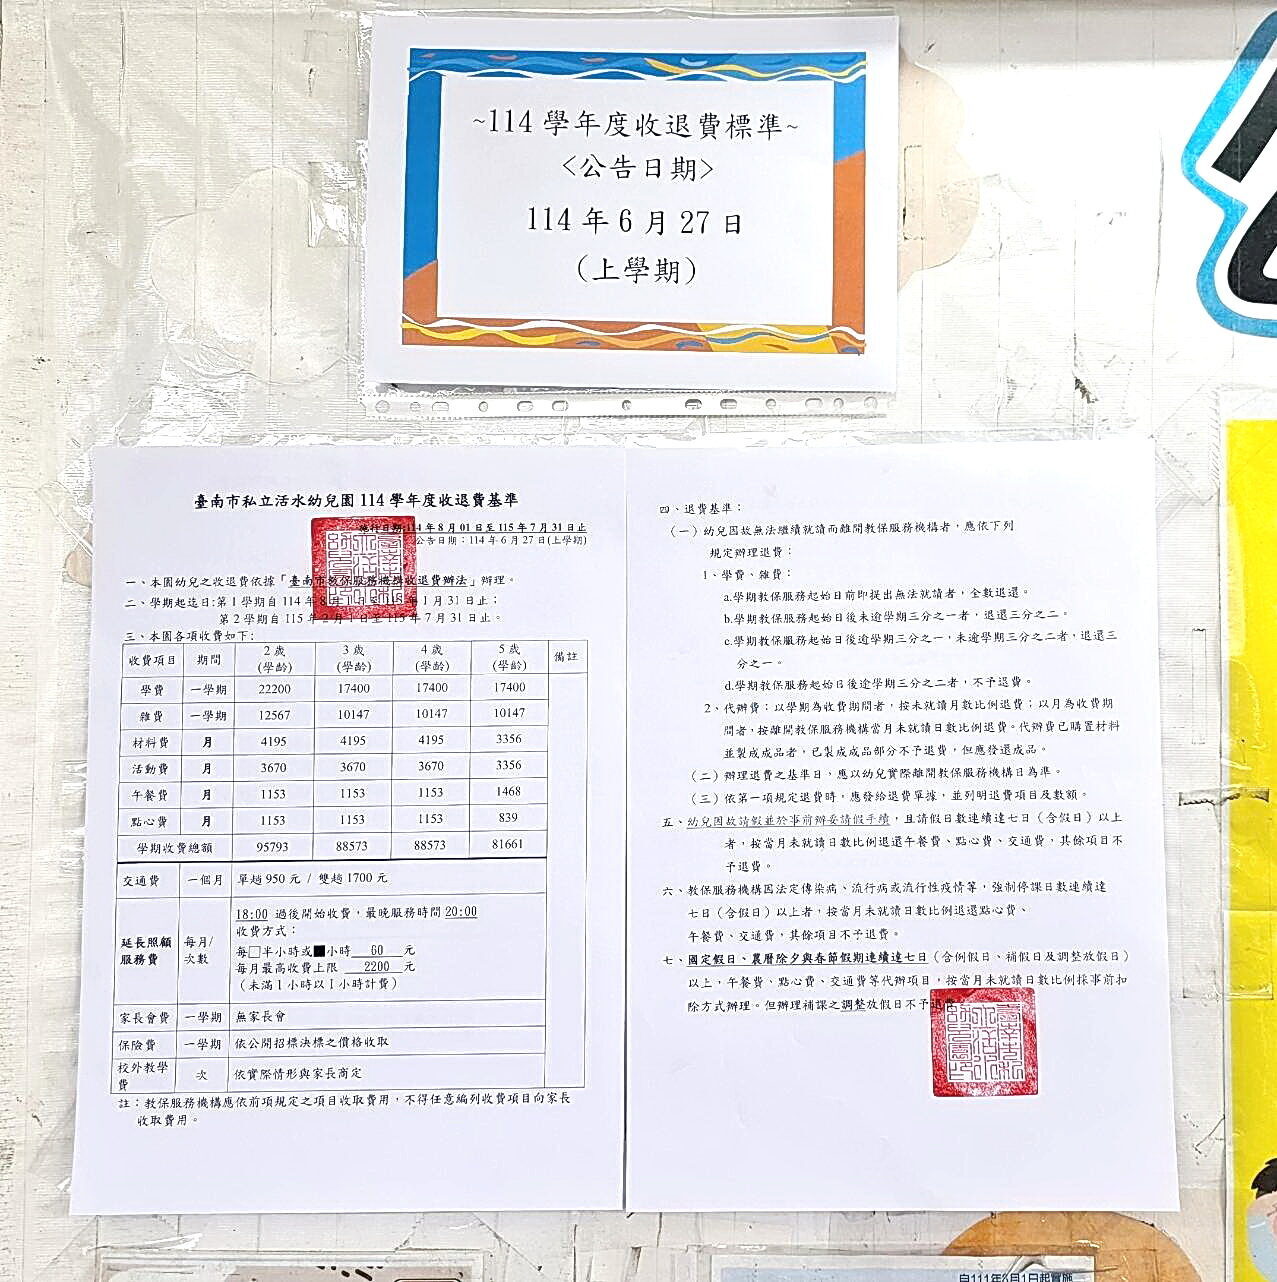 ~114 學年度收退費標準~
<公告日期>
114 年 6 月 27 日
(上學期)
臺南市私立活水幼兒園 114 學年度收退費基準
施行日期:114 年 8 月 01 日至 115 年 7 月 31 日止
公告日期：114 年 6 月 27 日(上學期)
一、本園幼兒之收退費依據「臺南市教保服務機構收退費辦法」辦理。
二、學期起迄日:第 1 學期自 114 年 8 月 1 日至 115 年 1 月 31 日止；
第 2 學期自 115 年 2 月 1 日至 115 年 7 月 31 日止。
三、本園各項收費如下:
收費項目 期間 2 歲(學齡) 3 歲(學齡) 4 歲(學齡) 5 歲(學齡) 備註
學費 一學期 22200 17400 17400 17400
雜費 一學期 12567 10147 10147 10147
材料費 月 4195 4195 4195 3356
活動費 月 3670 3670 3670 3356
午餐費 月 1153 1153 1153 1468
點心費 月 1153 1153 1153 839
學期收費總額 95793 88573 88573 81661
交通費 一個月 單趟 950 元 / 雙趟 1700 元
延長照顧服務費 每月/次數
18:00 過後開始收費，最晚服務時間 20:00
收費方式：
每□半小時或■小時 60 元
每月最高收費上限 2200 元
(未滿 1 小時以 1 小時計費)
家長會費 一學期 無家長會
保險費 一學期 依公開招標決標之價格收取
校外教學費 次 依實際情形與家長商定
註：教保服務機構應依前項規定之項目收取費用，不得任意編列收費項目向家長
收取費用。
四、退費基準：
(一) 幼兒因故無法繼續就讀而離開教保服務機構者，應依下列
規定辦理退費：
1、學費、雜費：
a.學期教保服務起始日前即提出無法就讀者，全數退還。
b.學期教保服務起始日後未逾學期三分之一者，退還三分之二。
c.學期教保服務起始日後逾學期三分之一，未逾學期三分之二者，退還三
分之一。
d.學期教保服務起始日後逾學期三分之二者，不予退費。
2、代辦費：以學期為收費期間者，按未就讀月數比例退費；以月為收費期
間者，按離開教保服務機構當月未就讀日數比例退費。代辦費已購置材料
並製成成品者，已製成成品部分不予退費，但應發還成品。
(二) 辦理退費之基準日，應以幼兒實際離開教保服務機構日為準。
(三) 依第一項規定退費時，應發給退費單據，並列明退費項目及數額。
五、幼兒因故請假並於事前辦妥請假手續，且請假日數連續達七日 (含假日) 以上
者，按當月未就讀日數比例退還午餐費、點心費、交通費，其餘項目不
予退費。
六、教保服務機構因法定傳染病、流行病或流行性疫情等，強制停課日數連續達
七日 (含假日) 以上者，按當月未就讀日數比例退還點心費、
午餐費、交通費，其餘項目不予退費。
七、國定假日、農曆除夕與春節假期連續達七日 (含例假日、補假日及調整放假日)
以上，午餐費、點心費、交通費等代辦項目，按當月未就讀日數比例採事前扣
除方式辦理。但辦理補課之調整放假日不予退費。
自111年8月1日起實施